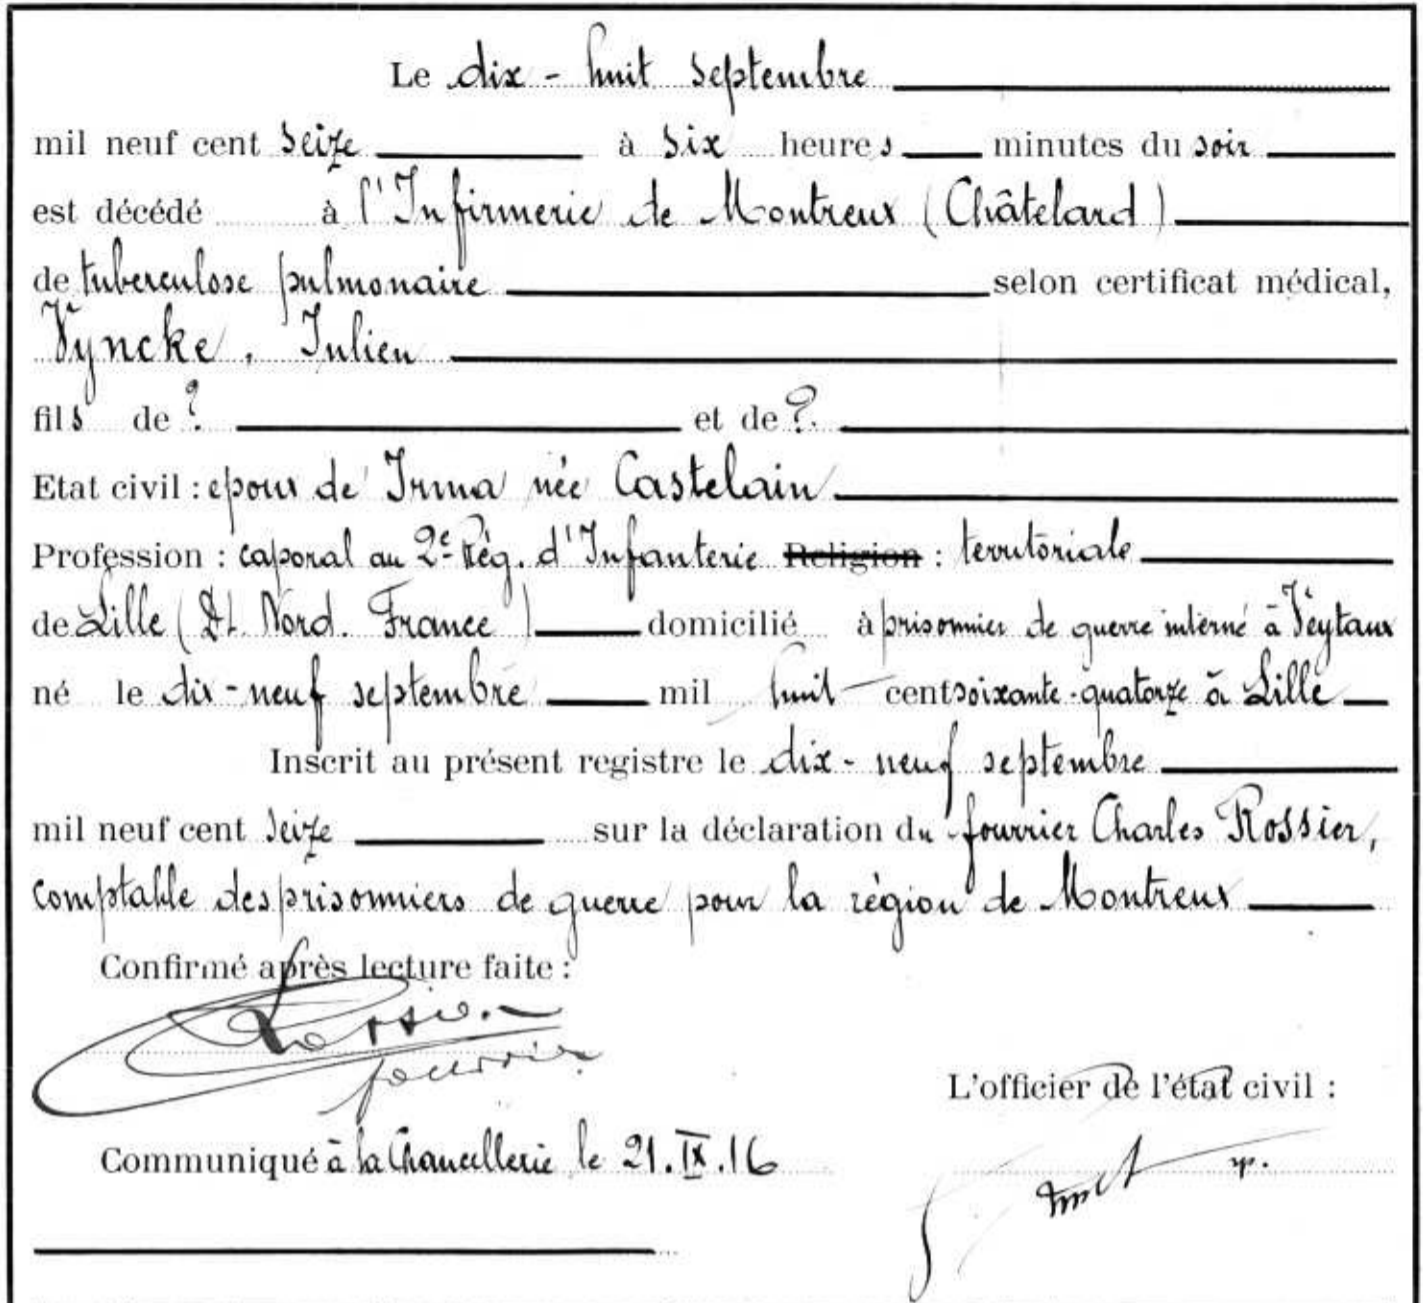 Le dix-huit septembre
mil neuf cent seize à six heures minutes du soir
est décédé à l'Infirmerie de Montreux (Châtelard)
de tuberculose pulmonaire selon certificat médical,
Vyncke, Julien
fils de ? et de ?.
Etat civil : epoux de Irma née Castelain
Profession : caporal au 2e Rég. d'Infanterie Religion : territoriale
de Lille (Dt. Nord. France) domicilié à prisonnier de guerre interné à Veytaux
né le dix-neuf septembre mil huit cent soixante-quatorze à Lille
Inscrit au présent registre le dix-neuf septembre
mil neuf cent seize sur la déclaration du fourrier Charles Rossier,
comptable des prisonniers de guerre pour la région de Montreux
Confirmé après lecture faite :
Rossier
fourrier
L'officier de l'état civil :
Communiqué à la Chancellerie le 21.IX.16